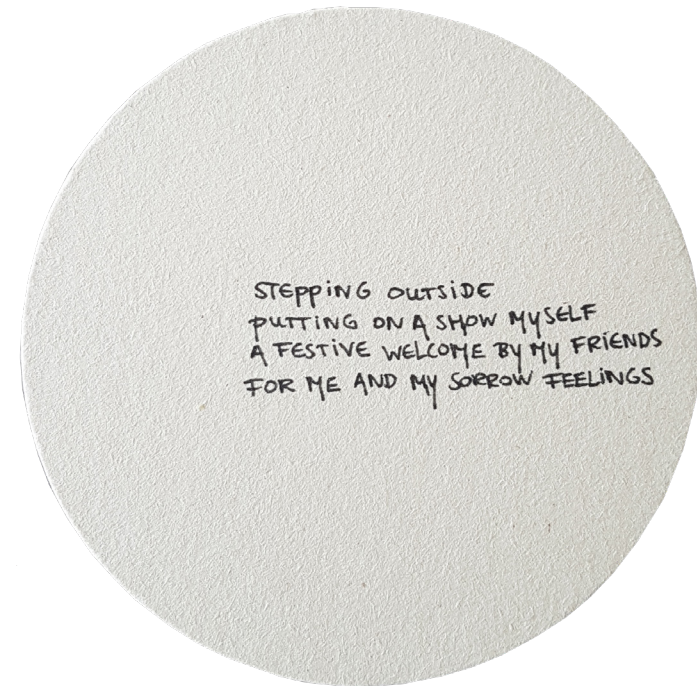 STEPPING OUTSIDE
PUTTING ON A SHOW MYSELF
A FESTIVE WELCOME BY MY FRIENDS
FOR ME AND MY SORROW FEELINGS